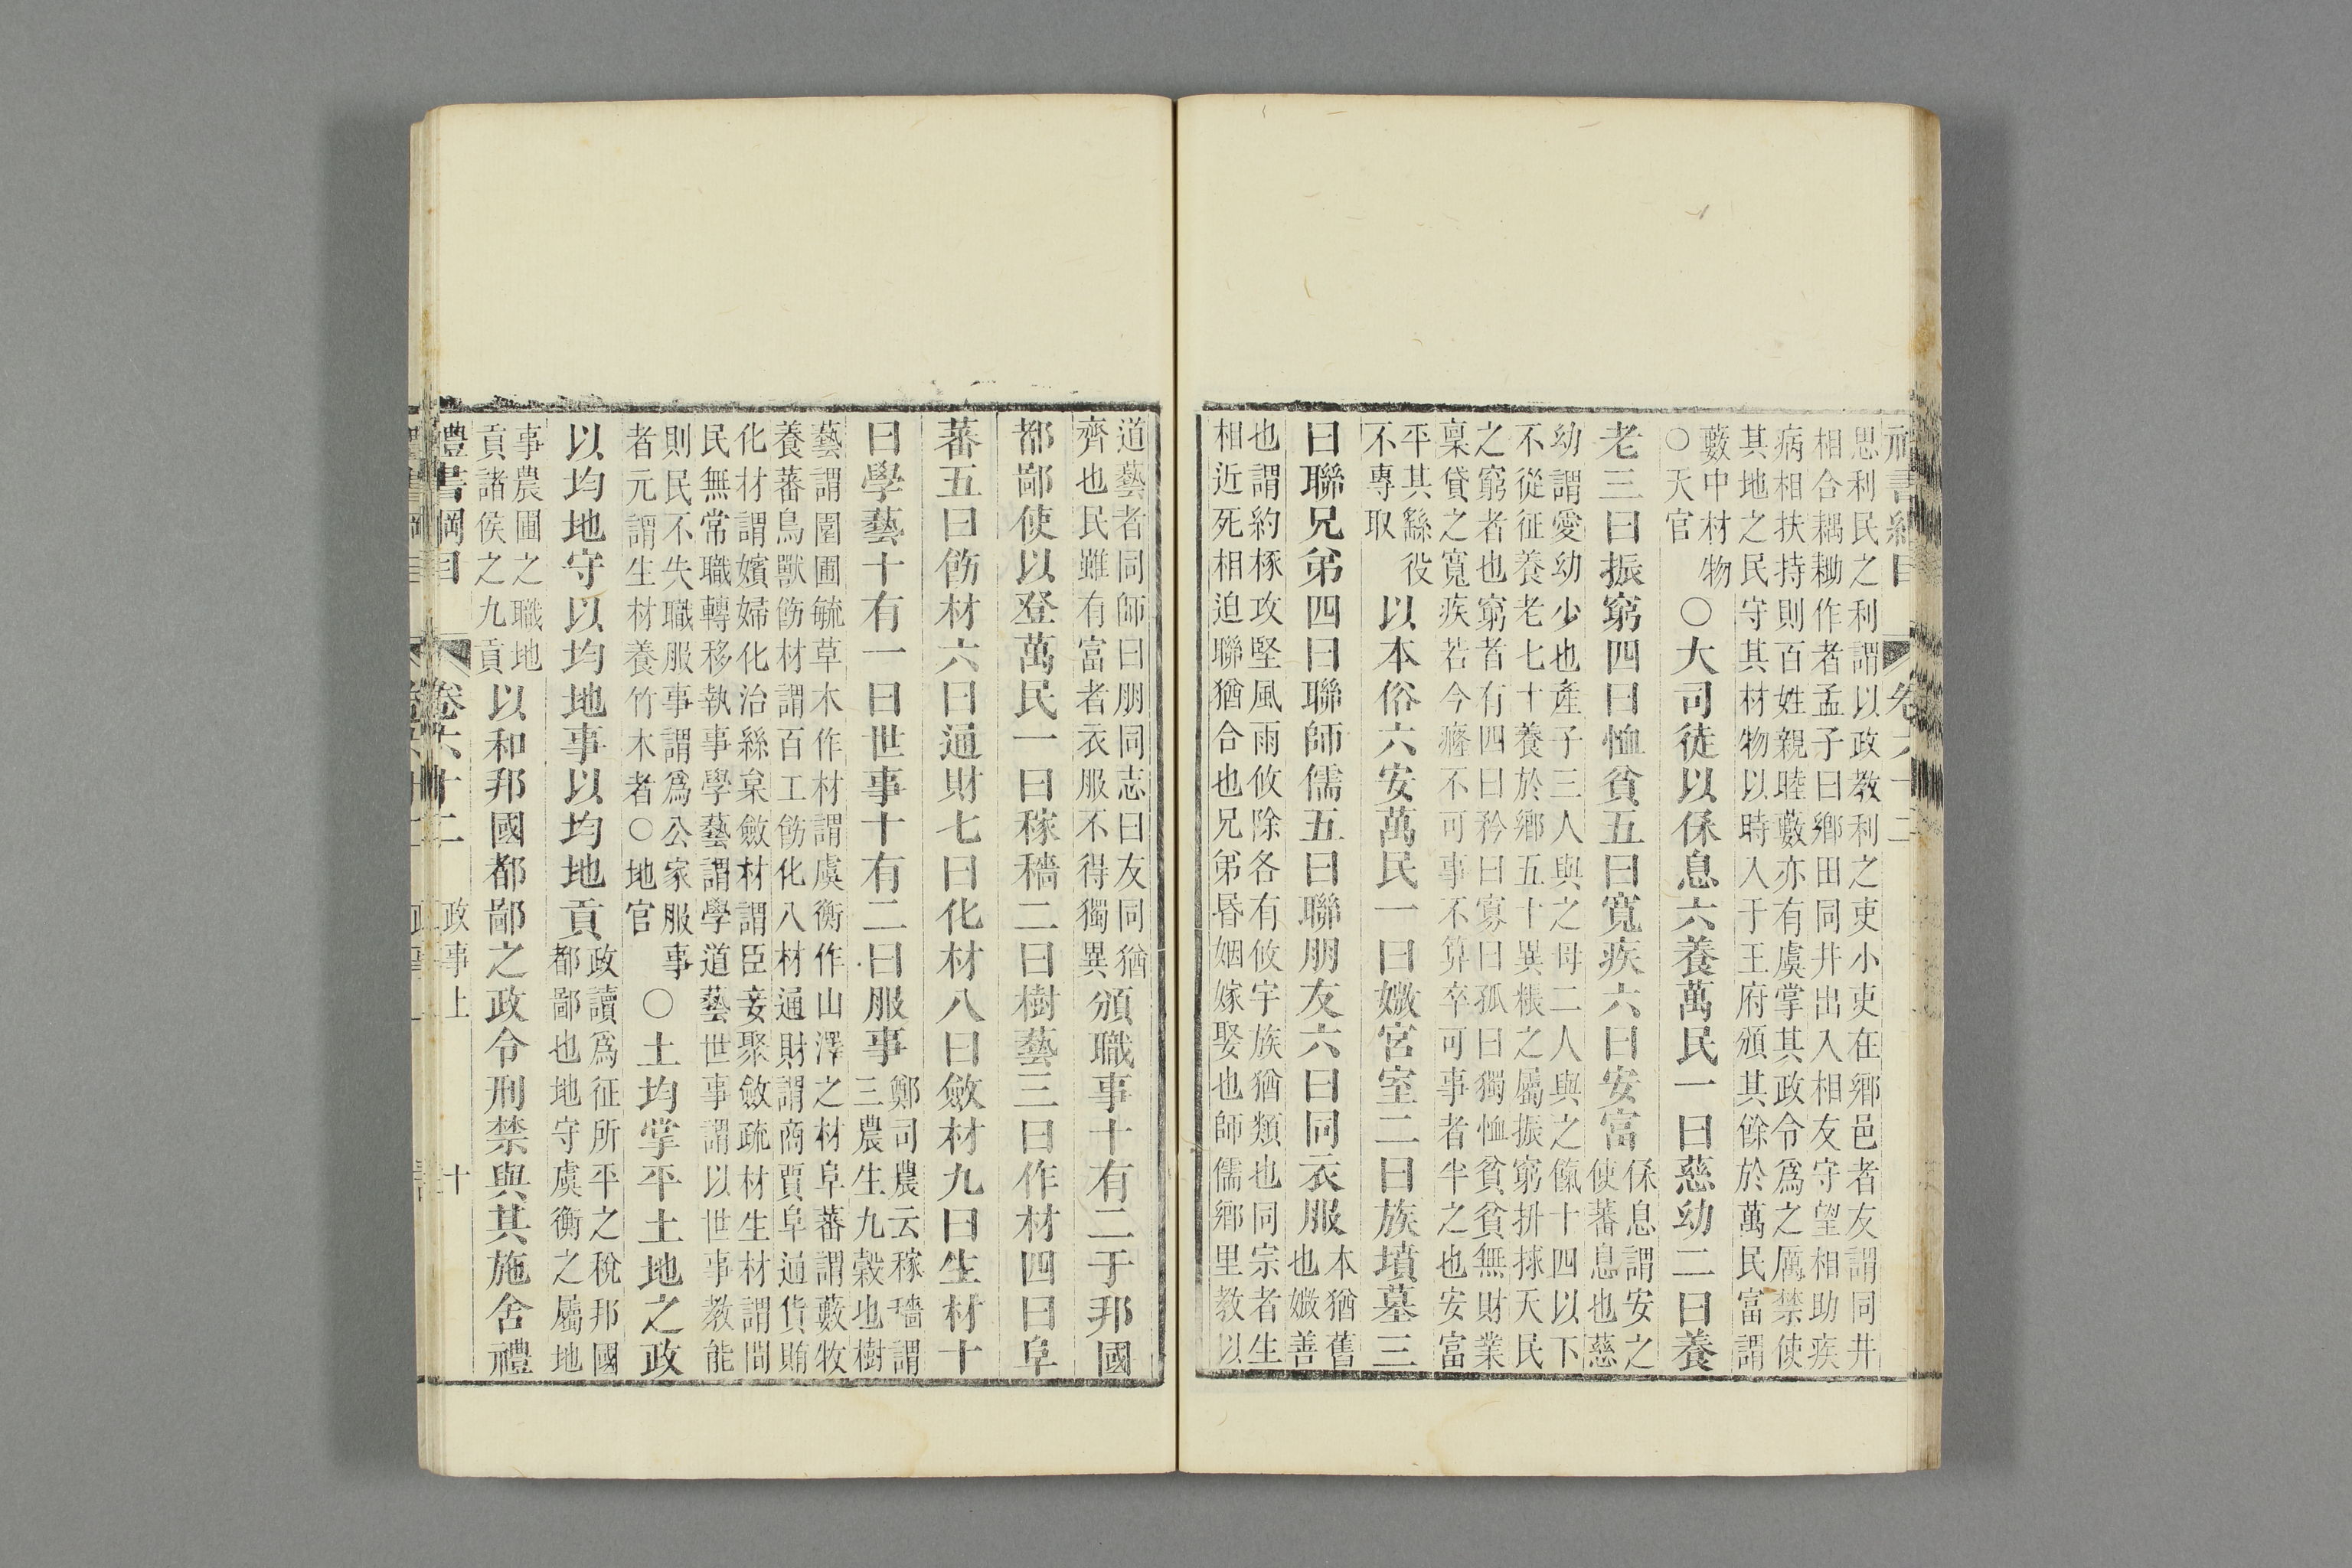 禮書綱目　卷六十二
思利民之利謂以政教利之吏小吏在鄉邑者友謂同井
相合耦耡作者孟子曰鄉田同井出入相友守望相助疾
病相扶持則百姓親睦藪亦有虞掌其政令爲之厲禁使
其地之民守其材物以時入于王府頒其餘於萬民富謂
藪中材物
○天官
○大司徒以保息六養萬民一曰慈幼二曰養
老三曰振窮四曰恤貧五曰寬疾六曰安富
保息謂安之
使蕃息也慈
幼謂愛幼少也產子三人與之母二人與之餼十四以下
不從征養老七十養於鄉五十異粻之屬振窮抍捄天民
之窮者也窮者有四曰矜曰寡曰孤曰獨恤貧貧無財業
稟貸之寬疾若今癃不可事不筭卒可事者半之也安富
平其繇役
不專取
以本俗六安萬民一曰媺宮室二曰族墳墓三
曰聯兄弟四曰聯師儒五曰聯朋友六曰同衣服
本猶舊
也媺善
也謂約椓攻堅風雨攸除各有攸宇族猶類也同宗者生
相近死相迫聯猶合也兄弟昏姻嫁娶也師儒鄉里教以
道藝者同師曰朋同志曰友同猶
齊也民雖有富者衣服不得獨異
頒職事十有二于邦國
都鄙使以登萬民一曰稼穡二曰樹藝三曰作材四曰阜
蕃五曰飭材六曰通財七曰化材八曰斂材九曰生材十
曰學藝十有一曰世事十有二曰服事
鄭司農云稼穡謂
三農生九穀也樹
藝謂園圃毓草木作材謂虞衡作山澤之材阜蕃謂藪牧
養蕃鳥獸飭材謂百工飭化八材通財謂商賈阜通貨賄
化材謂嬪婦化治絲枲斂材謂臣妾聚斂疏材生材謂閒
民無常職轉移執事學藝謂學道藝世事謂以世事教能
則民不失職服事謂爲公家服事
者元謂生材養竹木者○地官
○土均掌平土地之政
以均地守以均地事以均地貢
政讀爲征所平之稅邦國
都鄙也地守虞衡之屬地
事農圃之職地
貢諸侯之九貢
以和邦國都鄙之政令刑禁與其施舍禮
禮書綱目　卷六十二　政事上　十